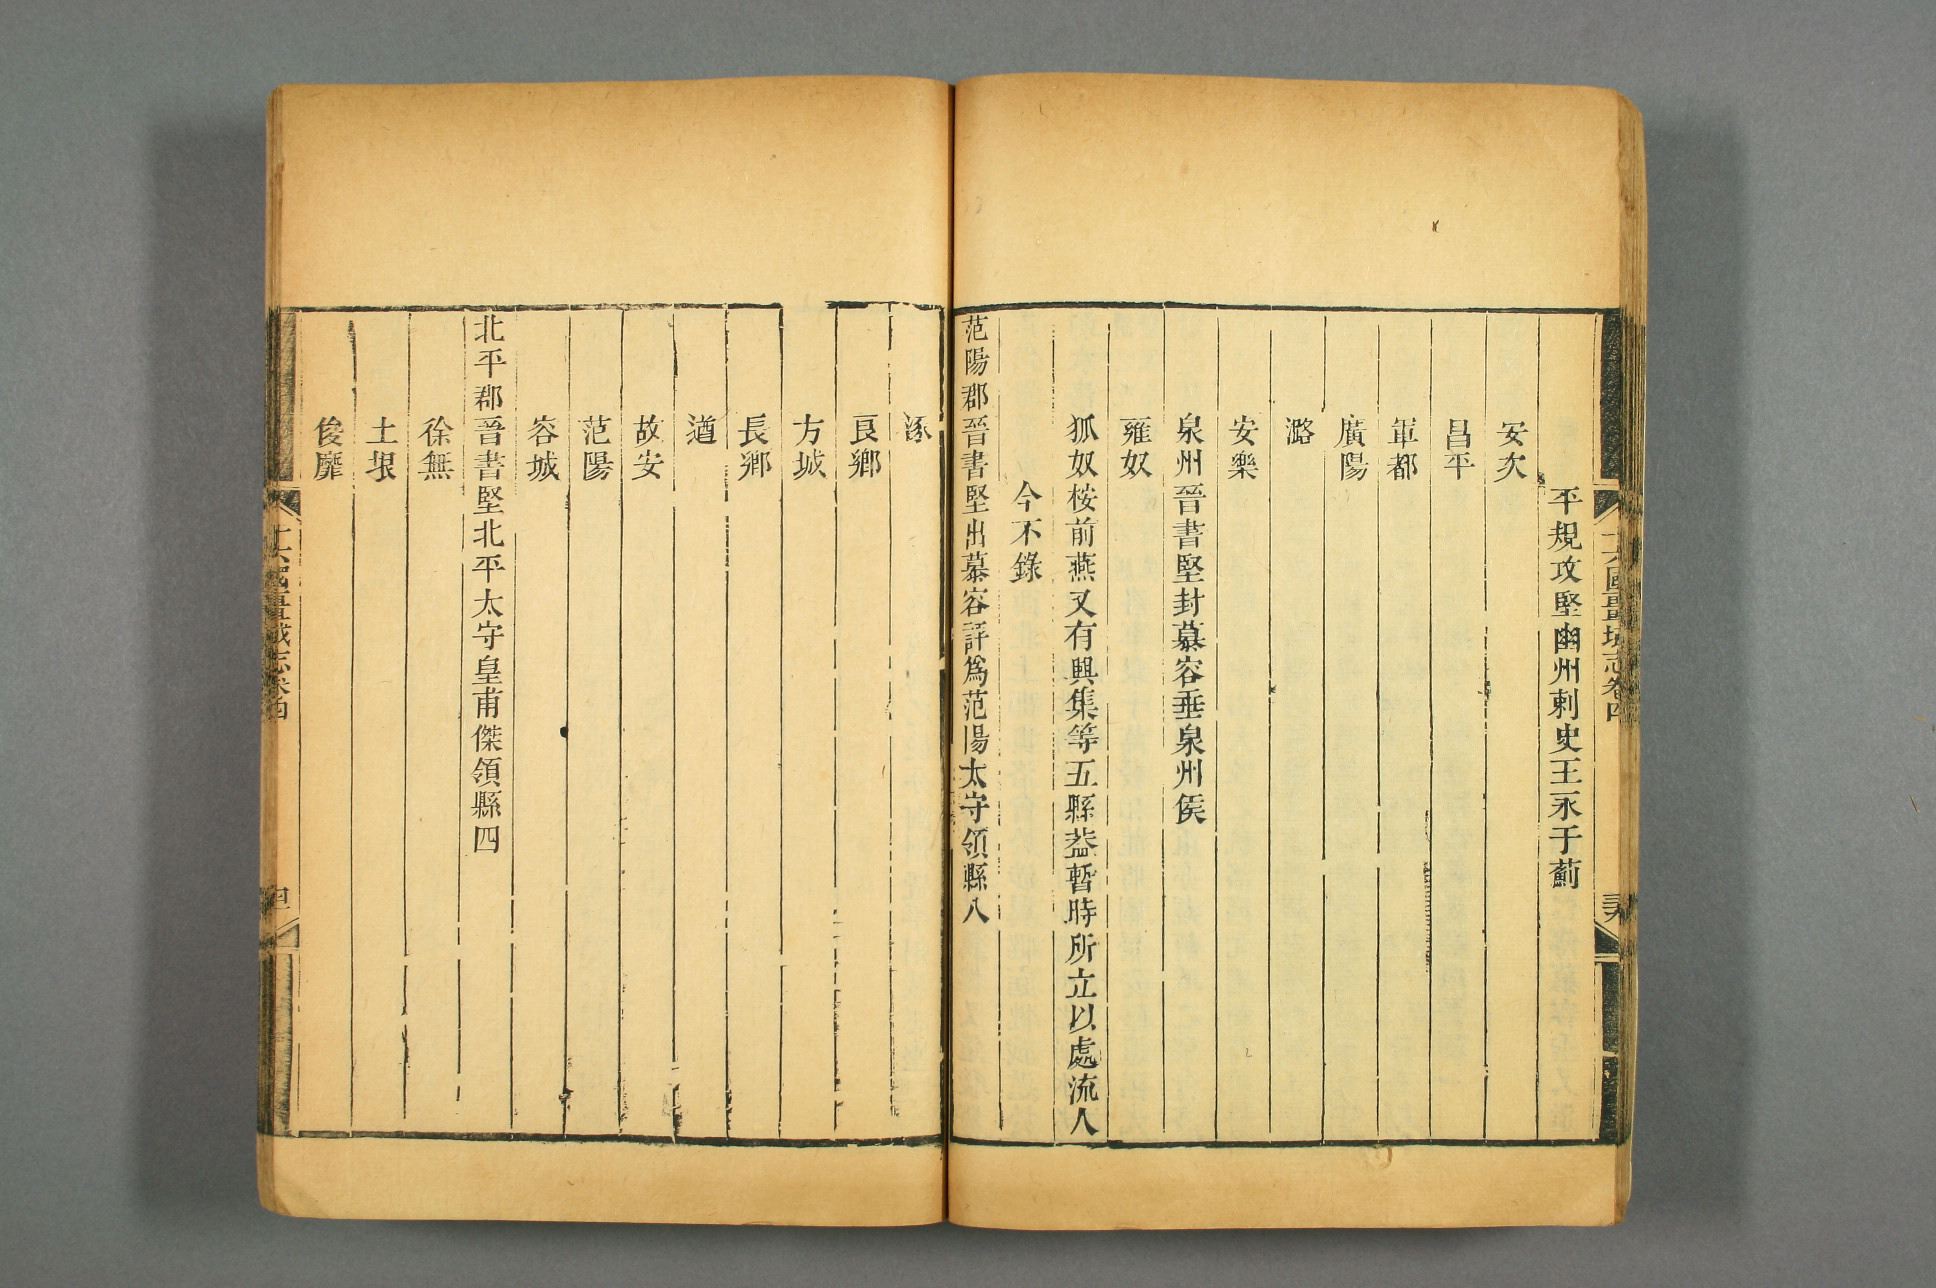 十六國疆域志卷四
平規攻堅幽州刺史王永于薊
安次
昌平
軍都
廣陽
潞
安樂
泉州晉書堅封慕容垂泉州侯
雍奴
狐奴桉前燕又有興集等五縣葢暫時所立以處流人
今不錄
范陽郡晉書堅出慕容評爲范陽太守領縣八
涿
良鄉
方城
長鄉
遒
故安
范陽
容城
北平郡晉書堅北平太守皇甫傑領縣四
徐無
土垠
俊靡
十六國疆域志卷四